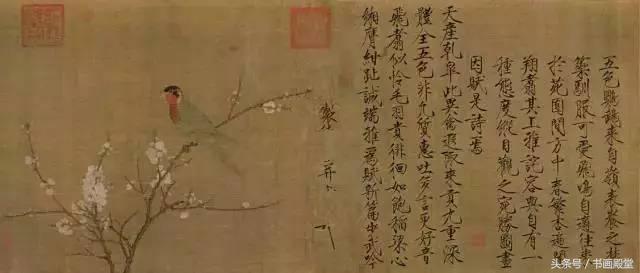 五色鸚鵡來自嶺表養之禁
籞馴服可愛飛鳴自適往來
於苑囿間方中春繁杏遍開
翔翥其上雅詫容與自有一
種態度縱目觀之宛勝圖畫
因賦是詩焉
天產乾皐此異禽遐陬來貢九重深
體全五色非凡質惠吐多言更好音
飛翥似憐毛羽貴徘徊如飽稻粱心
緗膺紺趾誠端雅為賦新篇步武吟
製 并
头条号 / 书画殿堂